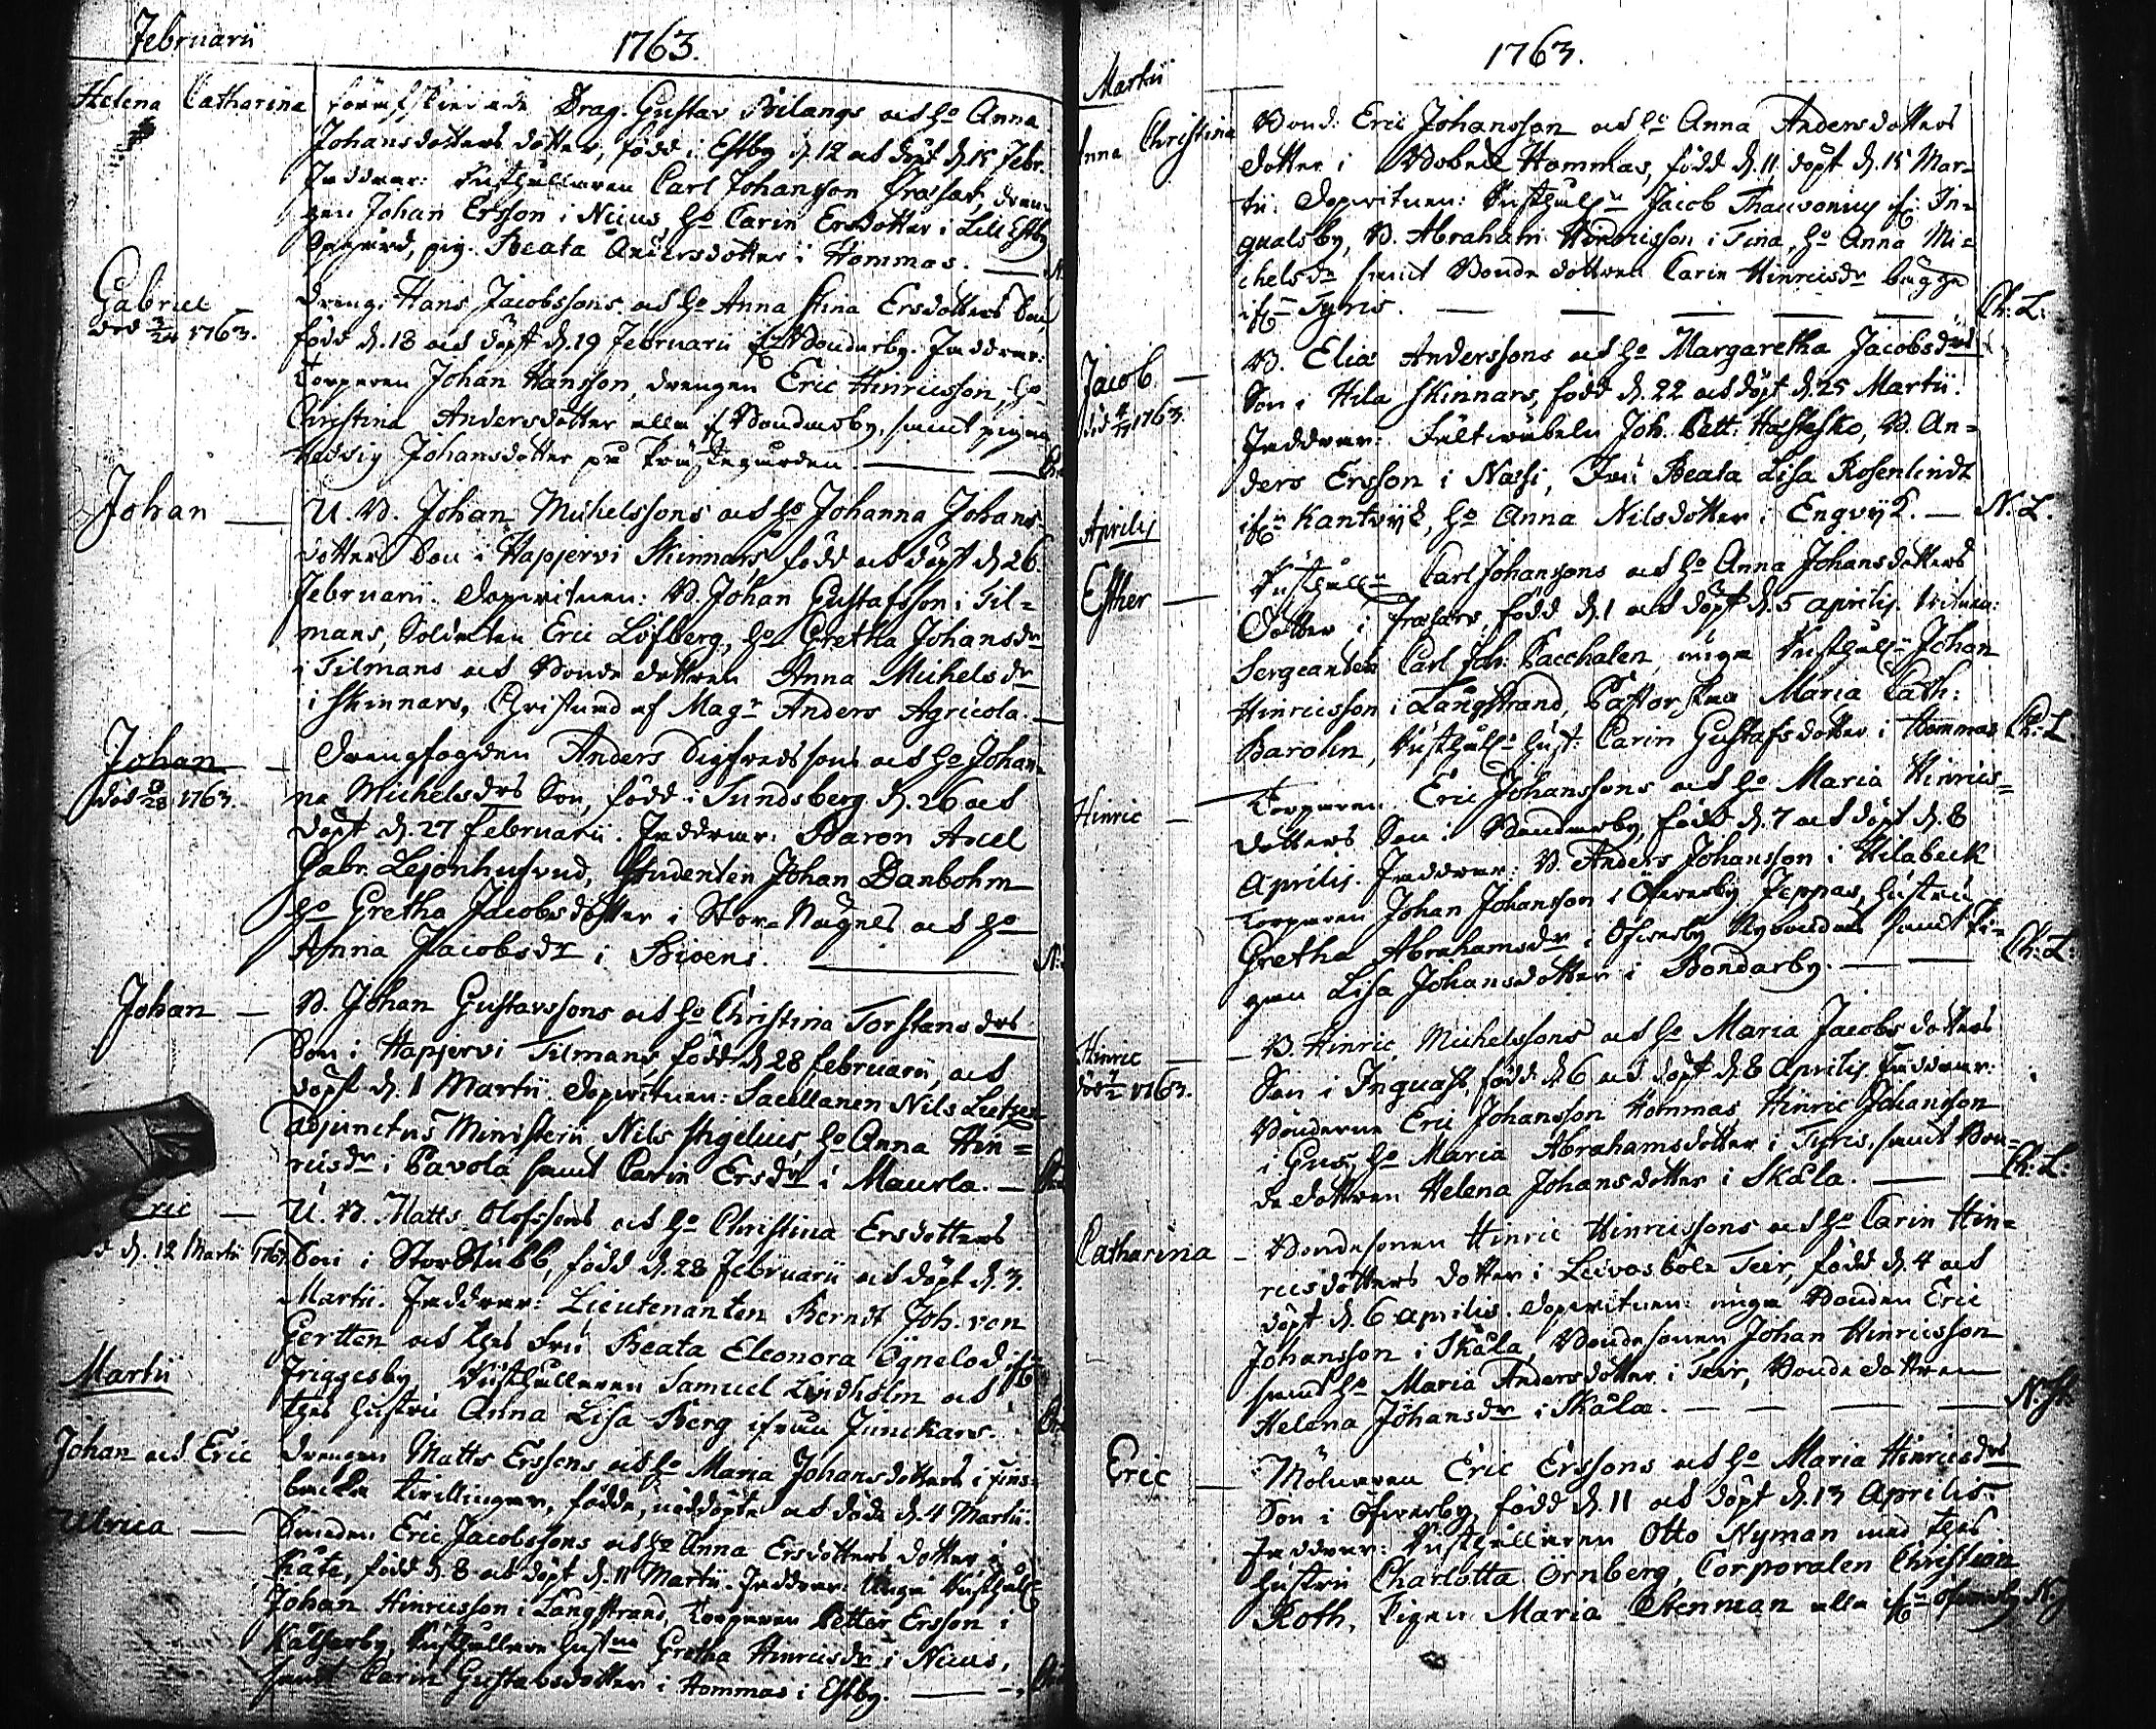 Februarii
1763.
Helena Catharina
Drag. Gustav Bilangs och ho Anna
Johansdotters dotter, född i Estby d. 12 och döpt d. 15 Febr.
Faddrar: Rusthållaren Carl Johansson Frasars, dren-
gen Johan Ersson i Nicus, ho Carin Ersdotter i Lill Estby
pig. Beata Andersdotter i Hommas. —
Gabriel
död 3/24 1763.
Dreng. Hans Jacobssons och ho Anna Stina Ersdotters Son
född d. 18 och döpt d. 19 Februarii Bondarby. Faddrar:
Torparen Johan Hansson, drengen Eric Hinricsson, ho
Christina Andersdotter alla if. Bondarby, samt pigan
Hedvig Johansdotter på Prästegården. —
Johan —
U. B. Johan Michelssons och ho Johanna Johans-
dotters Son i Hapjervi Skinnars, född och döpt d. 26.
Februarii. Dopvitnen: B. Johan Gustafsson i Til=
mans, Soldaten Eric Löfberg, ho Gretha Johansdr
i Tilmans och Bonde dottren Anna Michelsdr
i Skinnars, Christnad af Magr Anders Agricola. —
Johan —
död 8/28 1763.
Drengfogden Anders Sigfredssons och ho Johan-
na Michelsdrs Son, född i Sundsberg d. 26 och
döpt d. 27 Februarii. Faddrar: Baron Axel
Gabr. Lejonhufvud, Studenten Johan Danbohm
ho Gretha Jacobsdotter i Stor-Wagnes och ho
Anna Jacobsdr i Bioens. —
Johan —
B. Johan Gustavssons och ho Christina Torstansdrs
Son i Hapjervi Tilmans, född d. 28 Februarii, och
döpt d. 1 Martii. Dopvitnen: Sacellanen Nils
adjunctus Ministerii Nils Stigelius, ho Anna Hin=
ricsdr i Pavola samt Carin Ersdr i Maurla. —
Eric —
d. 12 Martii 1763
U. B. Matts Olofssons och ho Christina Ersdotters
Son i StorStubb, född d. 28 Februarii och döpt d. 3.
Martii. Faddrar: Lieutenanten Berndt Joh. von
Gertten och thes Fru Beata Eleonora Ögnelod ifr.
Friggesby Rusthållaren Samuel Lindholm och
thes hustru Anna Lisa Berg ifrån Junckars.
Martii
Johan och Eric
Drengen Matts Erssons och ho Maria Johansdotters i Fins=
backa tvillingar, födde, nöddöpte och döde d. 4 Martii.
Ulrica —
Smeden Eric Jacobssons och ho Anna Ersdotters dotter i
Kåte, född d. 8 och döpt d. 11 Martii. Faddrar: unga Rusthåll.
Johan Hinricsson i Långstrand, Torparen Petter Ersson i
Källarby, Rusthållare hustrun Gretha Hinricsdr i Nicus,
samt Carin Gustavsdotter i Hommas i Estby. —
1763.
Martii
Anna Christina
Bond. Eric Johansson och ho Anna Andersdotters
dotter i Hommas, född d. 11, döpt d. 15 Mar-
tii. Dopvitnen: Rusthåln Jacob Thauvonius if: In=
gvalsby, B. Abraham Hindricsson i Tina, ho Anna Mi=
chelsdr samt Bonde dottren Carin Hinricsdr bägge
ifn Tyris. — — — — — Ch: L:
Jacob —
död 4/4 1763.
B. Elias Anderssons och ho Margaretha Jacobsdrs
Son i Hila Skinnars, född d. 22 och döpt d. 25 Martii.
Faddrar: Fältväbeln Joh. Pett. Hästesko, B. An=
ders Ersson i Nässi, Fru Beata Lisa Rosenlindt
ifrn Kantvijk, ho Anna Nilsdotter i Engvijk. — N. L.
Aprilis
Esther —
Rusthålln Carl Johanssons och ho Anna Johansdotters
Dotter i Frasars, född d. 1 och döpt d. 5 Aprilis. Vitnen:
Sergeanten Carl Joh: Pacchalen, unga Rusthåln Johan
Hinricsson i Långstrand, Pastorskan Maria Cath:
Barohn, Rusthåls hust: Carin Gustafsdotter i Hommas Ch: L.
Hinric —
Torparen Eric Johanssons och ho Maria Hinrics=
dotters Son i Bondarby, född d. 7 och döpt d. 8
Aprilis. Faddrar: B. Anders Johansson i Hilabeck
Torparen Johan Johansson i Öfverby Jeppas, hustru
Gretha Abrahamsdr i Öfverby Nybondas samt Pi=
gan Lisa Johansdotter i Bondarby. — — Ch: L:
Hinric —
död 7/2 1763.
B. Hinric Michelssons och ho Maria Jacobsdotters
Son i Ingvals, född d. 6 och döpt d. 8 Aprilis. Faddrar:
Bönderne Eric Johansson Hommas, Hinric Johansson
i Gus, ho Maria Abrahamsdotter i Tyris, samt Bon=
de dottren Helena Johansdotter i Skåla. — — Ch: L:
Catharina —
Bondesonen Hinric Hinricssons och ho Carin Hin=
ricsdotters dotter i Leivosböle Teir, född d. 4 och
döpt d. 6 Aprilis. Dopvitnen: unga Bonden Eric
Johansson i Skåla, Bondesonen Johan Hinricsson
samt ho Maria Andersdotter i Teir, Bonde dottren
Helena Johansdr i Skåla. — — — — N. St.
Eric —
Mölnaren Eric Erssons och ho Maria Hinricsdrs
Son i Öfverby, född d. 11 och döpt d. 13 Aprilis.
Faddrar: Rusthållaren Otto Nyman med thes
hustru Charlotta Örnberg, Corporalen Christian
Roth, Pigan Maria Stenman alla ifrn Öfverby